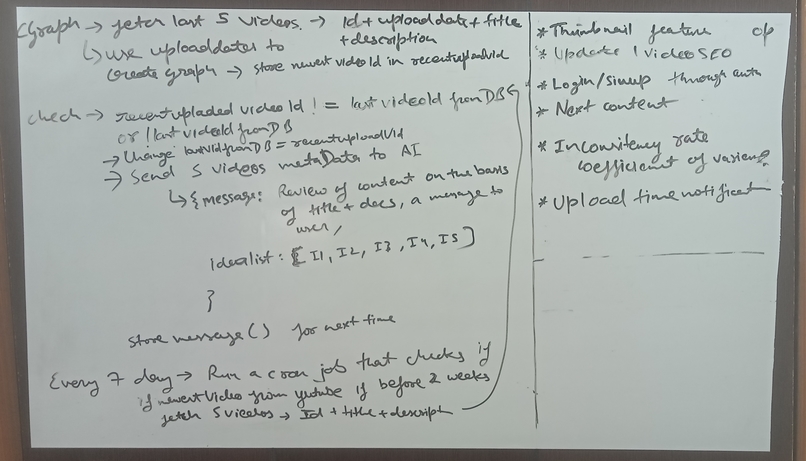 Graph → fetch last 5 videos → Id + upload date + title
+ description
↳ use uploaddates to
create graph → store newest videoId in recentuploadvid
check → recentuploaded videoId != last videoId from DB {
or !last videoId from DB
→ Change lastVidfromDB = recentuploadVid
→ Send 5 videos metaData to AI
↳ { message: Review of content on the basis
of title + decs, a message to
user,
Idealist: [I1, I2, I3, I4, I5]
}
store message() for next time
Every 7 day → Run a cron job that checks if
if newest video from youtube if before 2 weeks
fetch 5 videos → Id + title + descript
* Thumbnail feature op
* Update 1 video SEO
* Login/sinup through auth
* Next content
* Inconsitency rate
coefficient of varience
* Upload time notificat